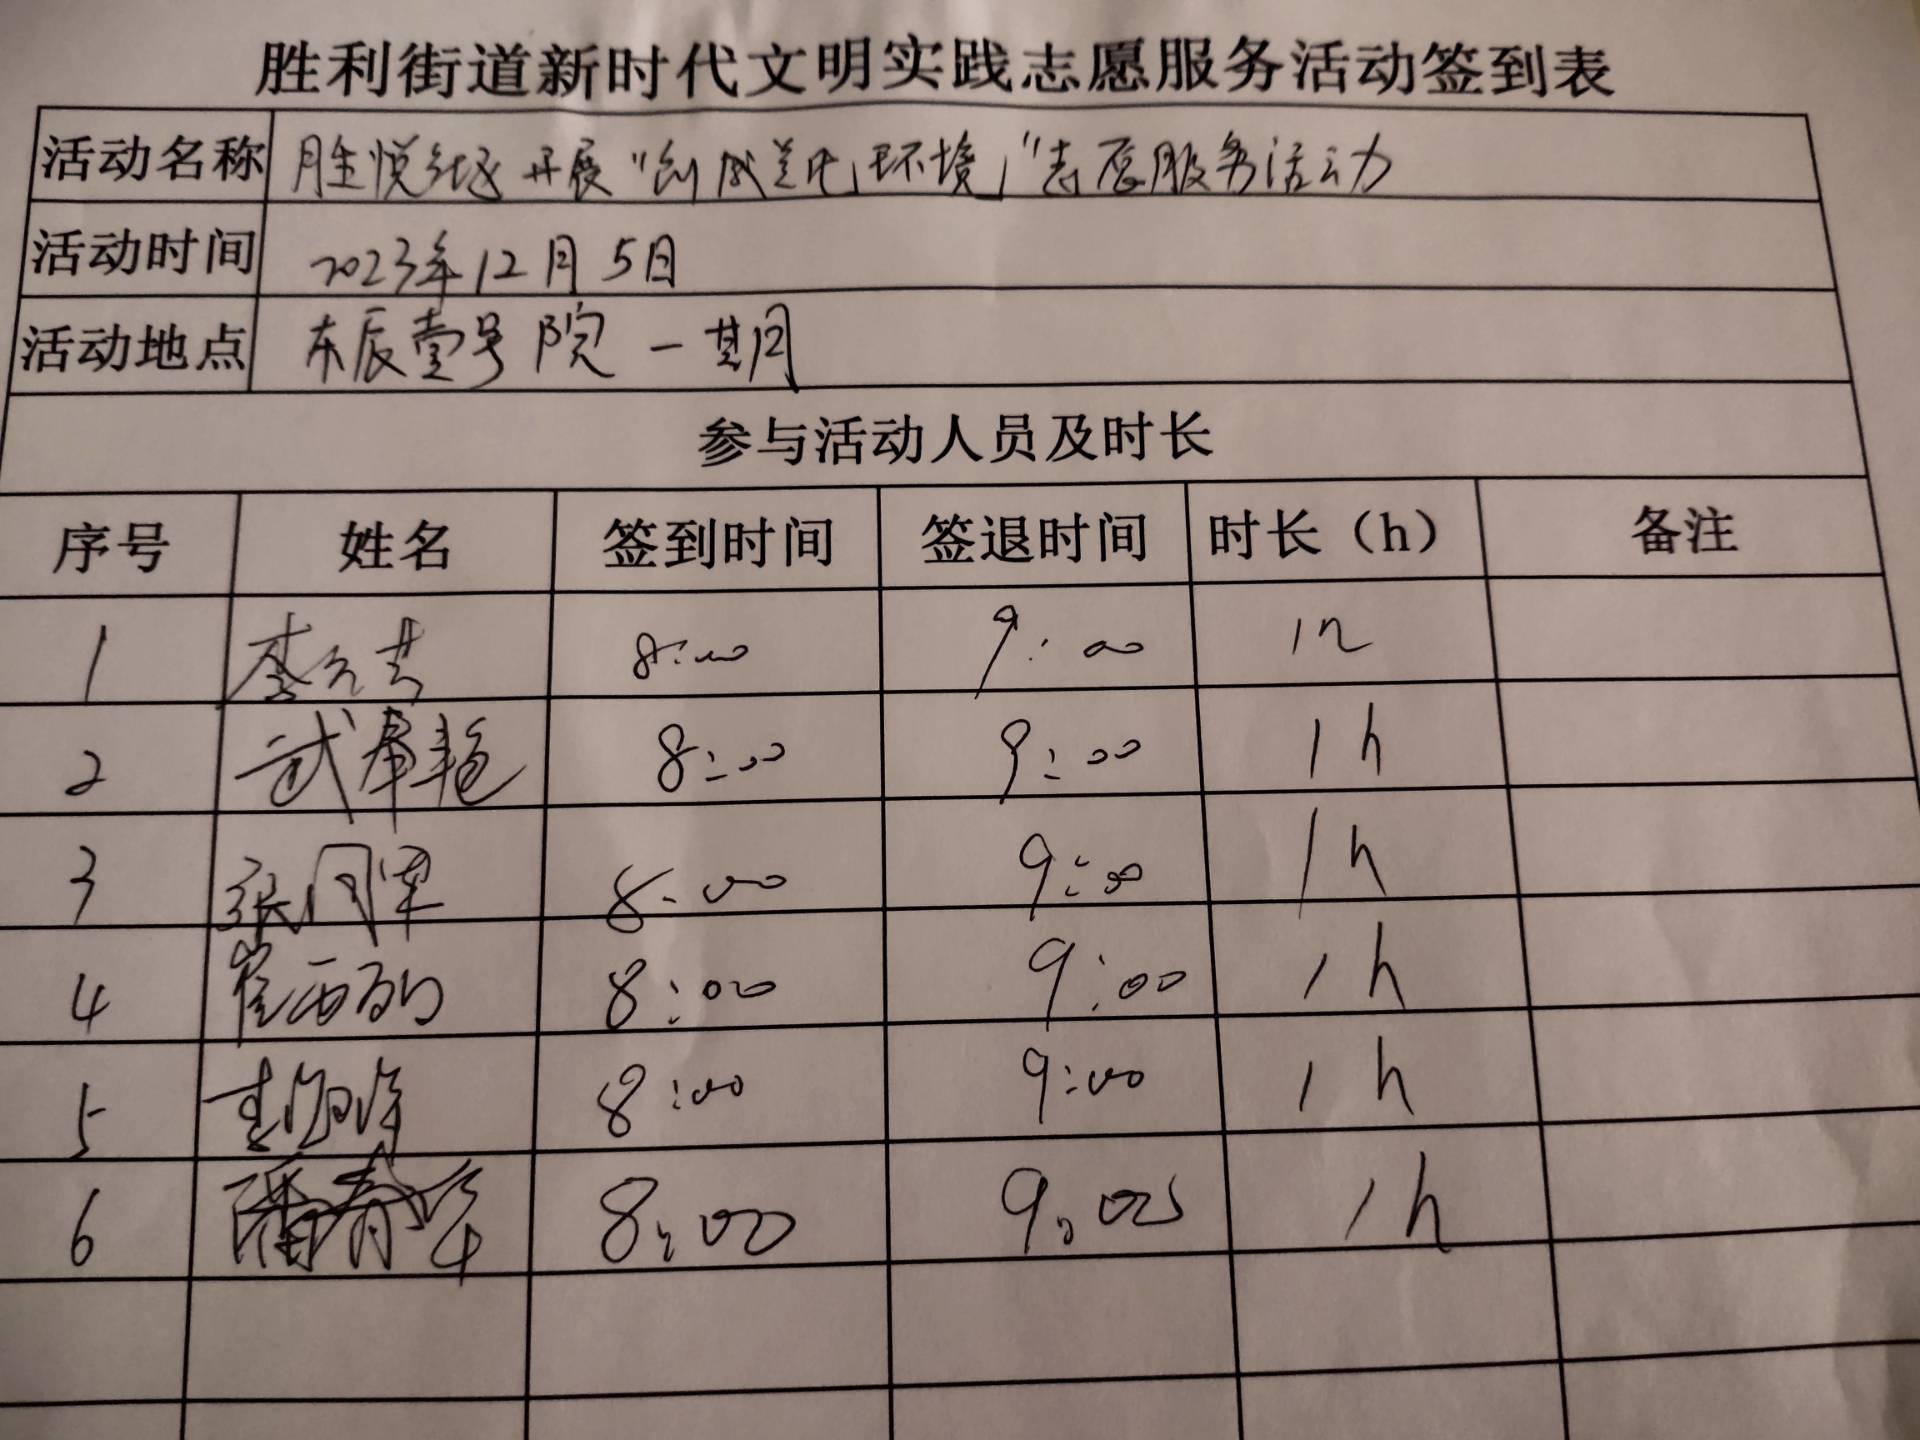 胜利街道新时代文明实践志愿服务活动签到表
活动名称 胜悦社区开展“创城美化环境”志愿服务活动
活动时间 2023年12月5日
活动地点 东辰壹号院一期
参与活动人员及时长
序号 姓名 签到时间 签退时间 时长（h） 备注
1 8:00 9:00 1h
2 武奉艳 8:00 9:00 1h
3 张同军 8:00 9:00 1h
4 崔西 8:00 9:00 1h
5 8:00 9:00 1h
6 潘春华 8:00 9:00 1h